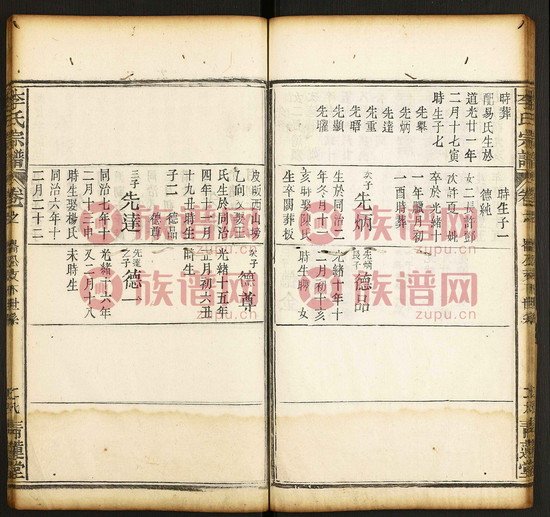 時葬
配易氏生於
道光廿一年
二月十七寅
時生子七
先舉
先炳
先達
先暉
先顯
先曜
時生子一
德純
女二長許鄧
次許
卒於光緒十
一年臘月初
一酉時葬
次子
先炳
生於同治二
年冬月十亥
時娶陳氏
生卒闕葬
先炳長子
德品
光緒十年十
二月初十亥
時生聘
女
炭畈西山塝
乙向
氏生於同治
四年十二月
十九丑時生
子二
德品
德尊
三子
先達
同治七年十
二月十申
時生娶楊氏
同治六年十
二月二十二
次子
德尊
光緒十五年
正月初六丑
時生
先達
之子
德一
光緒十六年
又二月十八
未時生
李氏宗譜
卷之
青蓮堂
李氏宗譜
青蓮堂
族谱网
zupu.cn
族谱网
zupu.cn
族谱网
zupu.cn
族谱网
zupu.cn